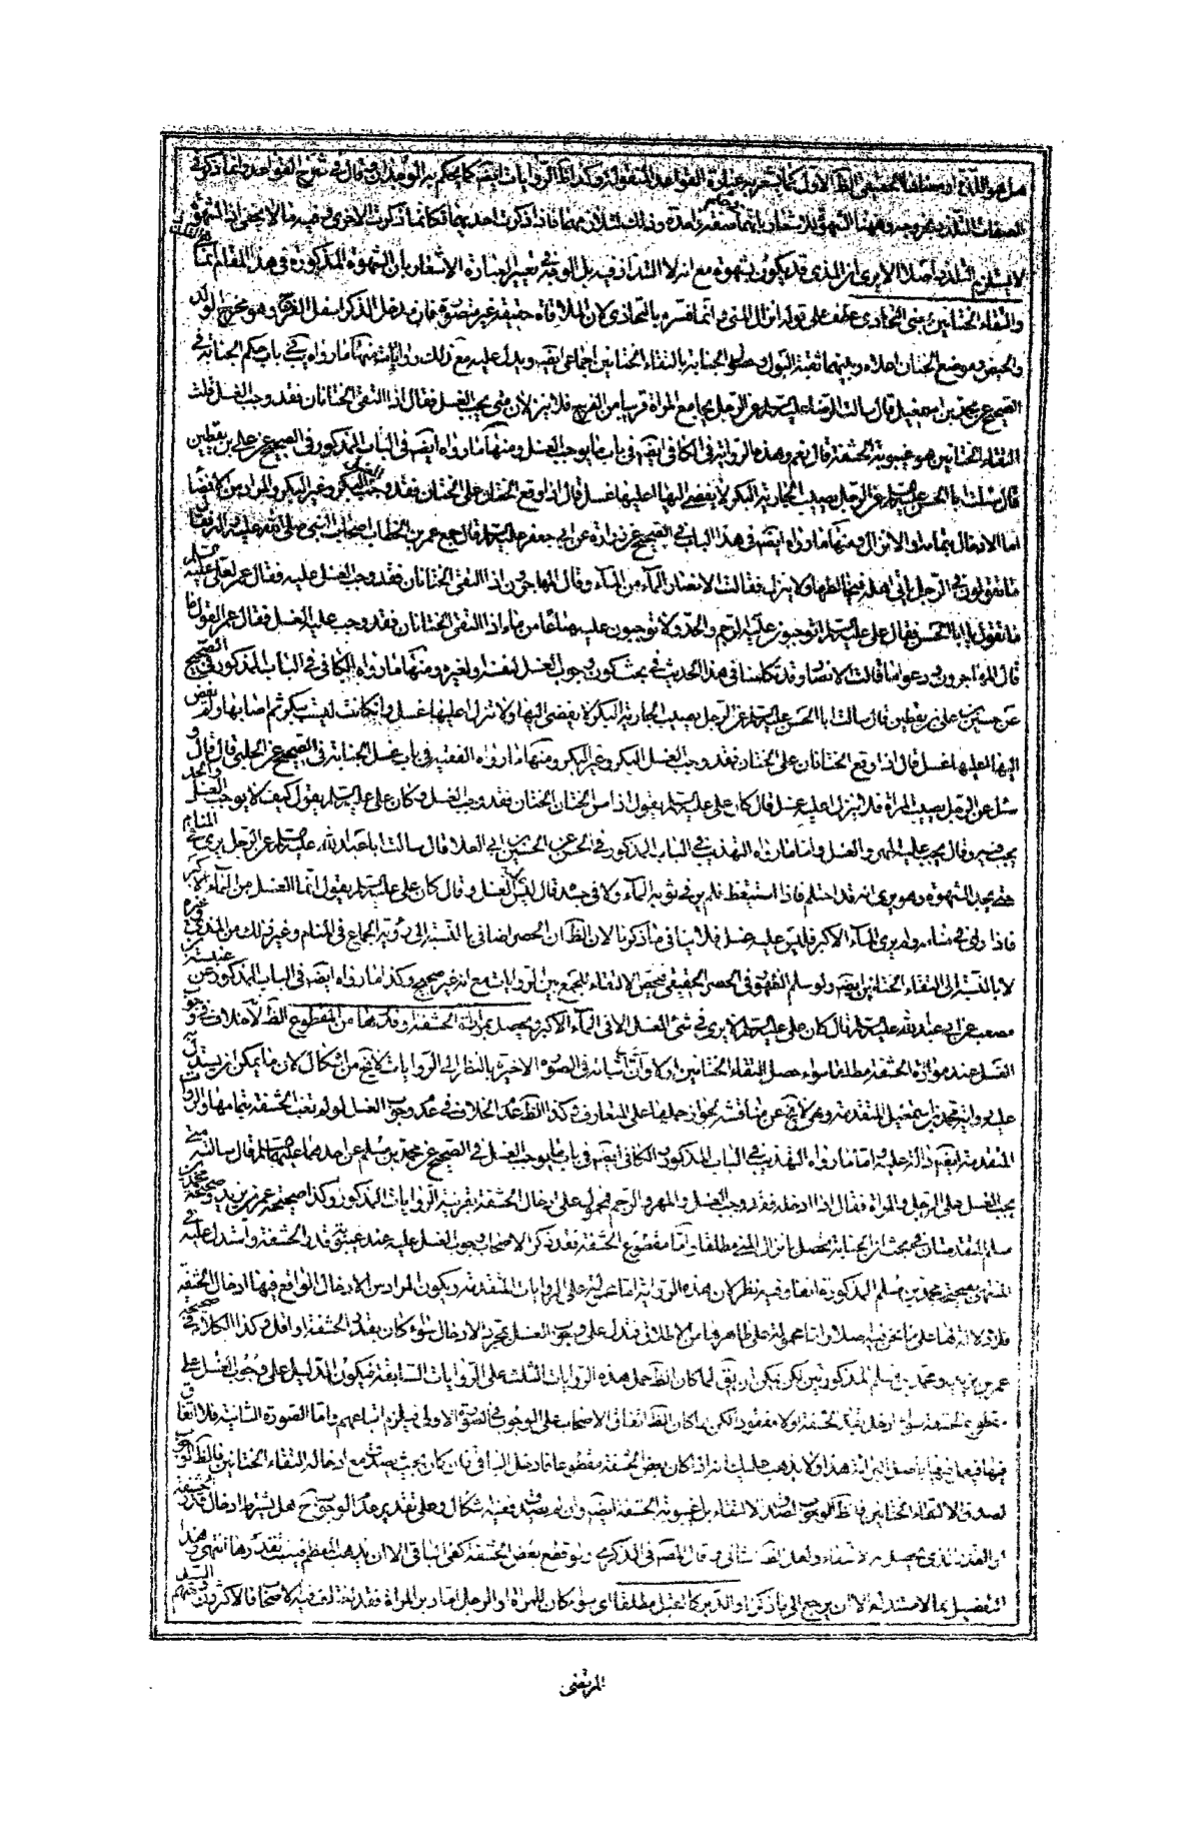 هل هو اللذة او معناها الحقيقي الظ الاول كما يشعر به عبارة القواعد المنقولة وكذا ظ الروايات ايضا كما يحكم به الوجدان وقال في شرح القواعد وانما ذكر في
الصفات التلذذ بخروجه وههنا الشهوة للاشعار بانهما صفة واحدة وذلك لتلازمهما فاذا ذكرت احديهما فكانما ذكرت الاخرى وفيه ما لا يخفى اذ الشهوة
لا يستلزم التلذذ اصلا الا يرى ان المذى قد يكون بشهوة مع انه لا التذاذ فيه بل الوجه في تغيير العبارة الاشعار بان الشهوة المذكورة في هذا المقام
والتقاء الختانين بمعنى التحاذى عطف على قوله انزال المنى وانما فسره بالتحاذى لان الملاقاة حقيقة غير متصورة فان مدخل الذكر اسفل الفرج وهو مخرج الولد
والحيض وموضع الختان اعلاه وبينهما ثقبة البول وحصول الجنابة بالتقاء الختانين اجماعى ايضا ويدل عليه مع ذلك روايات منها ما رواه يب في باب حكم الجنابة في
الصحيح عن محمد بن اسمعيل قال سالت الرضا عليه السلام عن الرجل يجامع المراة قريبا من الفرج فلا ينزلان متى يجب الغسل فقال اذا التقى الختانان فقد وجب الغسل قلت
التقاء الختانين هو غيبوبة الحشفة قال نعم وهذه الرواية في الكافى ايضا في باب ما يوجب الغسل ومنها ما رواه ايضا في الباب المذكور في الصحيح عن على بن يقطين
قال سالت ابا الحسن عليه السلام عن الرجل يصيب الجارية البكر لا يفضى اليها اعليها غسل قال اذا وقع الختان على الختان فقد وجب الغسل البكر وغير البكر والمراد من الافضاء
اما الادخال بتمامه او الانزال ومنها ما رواه ايضا في هذا الباب في الصحيح عن زرارة عن ابى جعفر عليه السلام قال جمع عمر بن الخطاب اصحاب النبى صلى الله عليه واله فقال
ما تقولون في الرجل ياتى اهله فيخالطها ولا ينزل فقالت الانصار الماء من الماء وقال المهاجرون اذا التقى الختانان فقد وجب الغسل عليه فقال عمر لعلى عليه السلام
ما تقول يا ابا الحسن فقال على عليه السلام اتوجبون عليه الرجم والحد ولا توجبون عليه صاعا من ماء اذا التقى الختانان فقد وجب عليه الغسل فقال عمر القول ما
قال المهاجرون ودعوا ما قالت الانصار وقد تكلمنا في هذا الحديث في بحث كون وجوب الغسل لنفسه او لغيره ومنها ما رواه الكافى في الباب المذكور في الصحيح
عن على بن يقطين قال سالت ابا الحسن عليه السلام عن الرجل يصيب الجارية البكر لا يفضى اليها ولا تنزل اعليها غسل وان كانت ليست ببكر ثم اصابها ولم يفض
اليها اعليها غسل قال اذا وقع الختان على الختان فقد وجب الغسل البكر وغير البكر ومنها ما رواه الفقيه في باب غسل الجنابة في الصحيح عن الحلبى قال
سئل عن الرجل يصيب المراة فلا ينزل اعليه غسل قال كان على عليه السلام يقول اذا مس الختان الختان فقد وجب الغسل وكان على عليه السلام يقول كيف لا يوجب الغسل والحد
يجب فيه وقال يجب عليه المهر والغسل واما ما رواه التهذيب في الباب المذكور في الحسن عن الحسين بن ابى العلا قال سالت ابا عبد الله عليه السلام عن الرجل يرى في المنام
حتى يجد الشهوة وهو يرى انه قد احتلم فاذا استيقظ فلم ير في ثوبه الماء ولا في جسده قال ليس عليه الغسل وقال كان على عليه السلام يقول انما الغسل من الماء الاكبر
فاذا راى في منامه ولم ير الماء الاكبر فليس عليه غسل فلا ينافى ما ذكرنا لان الظ ان الحصر اضافى بالنسبة الى رؤية الجماع في المنام وغير ذلك من المذى وغيره
لا بالنسبة الى التقاء الختانين ايضا ولو سلم الظهور في الحصر الحقيقى فيخص الالتقاء للجمع بين الروايات مع انه غير صحيح وكذا ما رواه ايضا في الباب المذكور عن عنبسة بن
مصعب عن ابى عبد الله عليه السلام قال كان على عليه السلام لا يرى في شئ الغسل الا في الماء الاكبر ويحصل بموازاة الحشفة وقدرها من المقطوع الظ لا خلاف في وجوب
الغسل عند مواراة الحشفة مطلقا سواء حصل التقاء الختانين اولا وان اثباته في الصورة الاخيرة بالنظر الى الروايات لا يخ من اشكال لان ما يمكن ان يستدل به
عليه رواية محمد بن اسمعيل المتقدمة وهى لا يخ عن مناقشة لجواز حملها على المتعارف وكذا الظ عدم الخلاف في عدم وجوب الغسل لو لم تغب الحشفة بتمامها والروايات
المتقدمة ايضا دالة عليه واما ما رواه التهذيب في الباب المذكور والكافى ايضا في باب ما يوجب الغسل في الصحيح عن محمد بن مسلم عن احدهما عليهما السلام قال سالته متى
يجب الغسل على الرجل والمراة فقال اذا ادخله فقد وجب الغسل والمهر والرجم فمحمول على ادخال الحشفة بقرينة الروايات المذكورة وكذا صحيحة عمر بن يزيد وصحيحة محمد بن
مسلم المتقدمتان في بحث ان الجنابة تحصل بانزال المنى مطلقا واما مقطوع الحشفة فقد ذكر الاصحاب وجوب الغسل عليه عند غيبوبة قدر الحشفة واستدل عليه في
المنتهى بصحيحة محمد بن مسلم المذكورة انفا وفيه نظر لان هذه الرواية اما محمولة على الروايات المتقدمة ويكون المراد من الادخال الواقع فيها ادخال الحشفة
فلا دلالة لها على ما نحن فيه اصلا واما محمولة على ظاهرها من الاطلاق فتدل على وجوب الغسل بمجرد الادخال سواء كان بقدر الحشفة او اقل وكذا الكلام في صحيحة
عمر بن يزيد ومحمد بن مسلم المذكورتين لكن يمكن ان يقال لما كان الظ حمل هذه الروايات الثلث على الروايات السابقة فيكون الدليل على وجوب الغسل على
مقطوع الحشفة سواء ادخل بقدر الحشفة اولا مفقودا لكن لما كان الظ اتفاق الاصحاب على الوجوب في الصورة الاولى فيلزم اتباعهم واما الصورة الثانية فلا اتفاق
فيها فيعمل فيها باصل البراءة هذا ولا يذهب عليك انه اذا كان بعض الحشفة مقطوعا فادخل الباقى فان كان بحيث يصدق مع ادخاله التقاء الختانين فالظ الوجوب
لصدق الالتقاء الختانين وان لم يصدق ففيه اشكال وعلى تقدير عدم الوجوب ح هل يشترط ادخال قدر الحشفة
او القدر الذى يحصل به الالتقاء ولعل الظ الثانى وقال المصنف في الذكرى ولو قطع بعض الحشفة كفى الباقى الا ان يذهب المعظم فيغيب بقدرها انتهى وهذا
التفصيل مما لا مستند له الا ان يرجع الى ما ذكرنا والدبر كالقبل مطلقا اى سواء كان للمراة او الرجل اما دبر المراة فقد اختلف فيه الاصحاب فالاكثرون ومنهم السيد
المرتضى